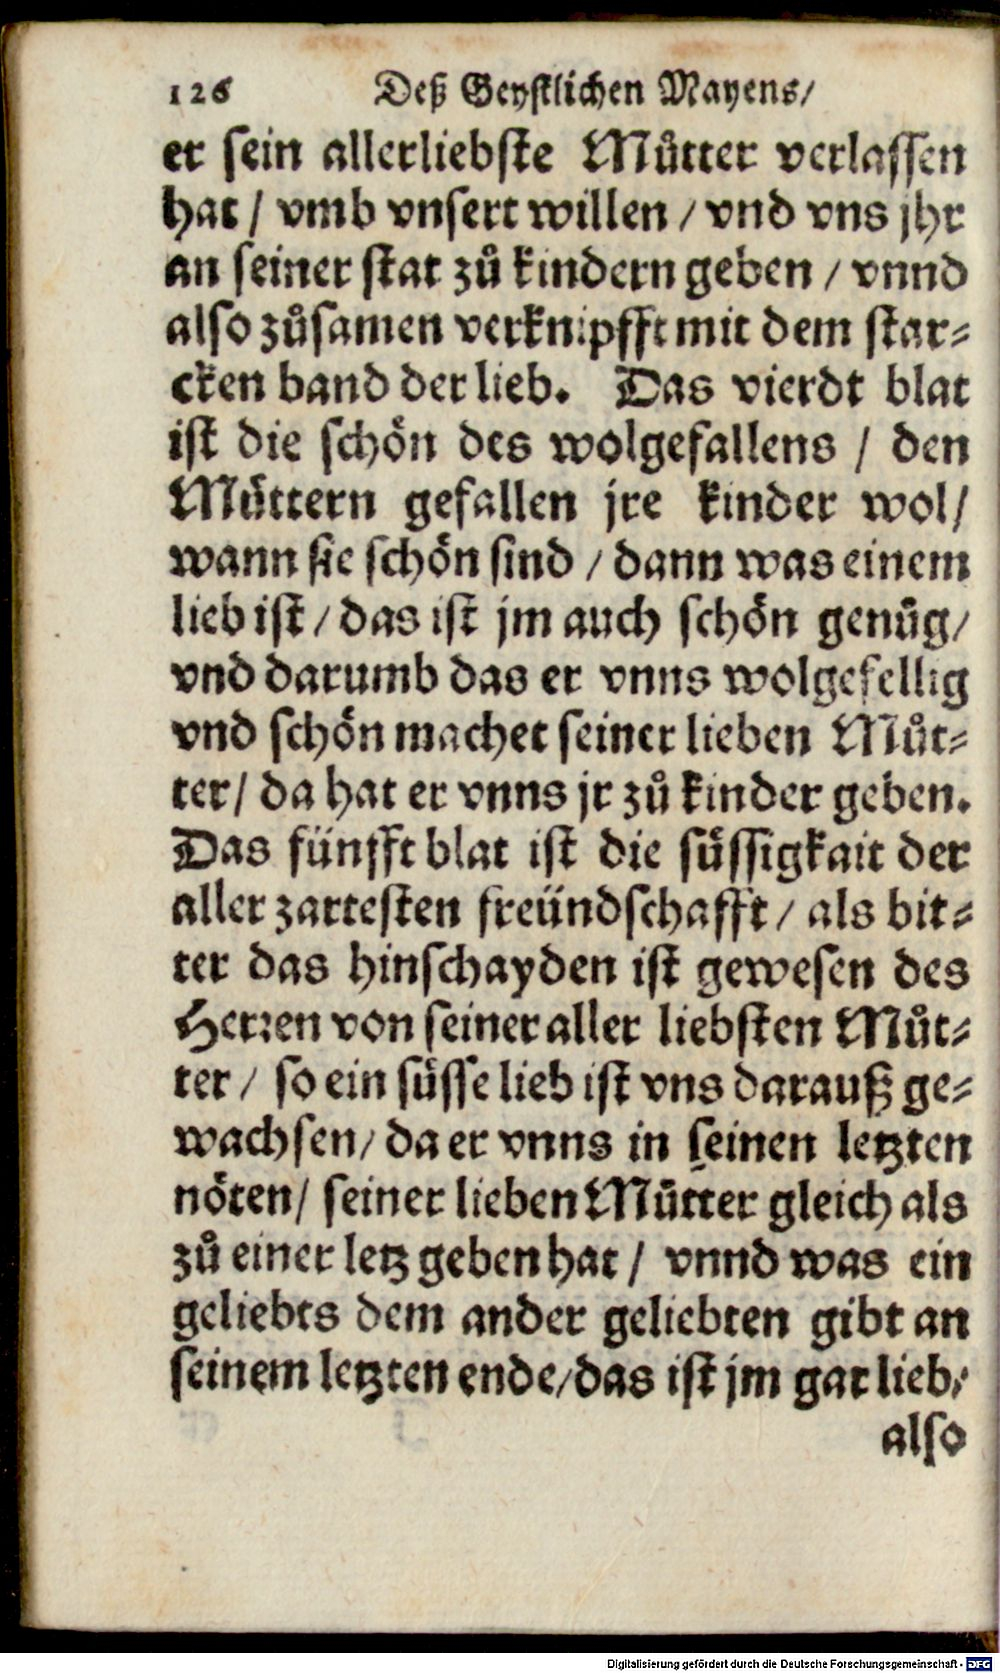 126 Deß Geystlichen Mayens/
er sein allerliebste Můtter verlassen
hat / vmb vnsert willen / vnd vns jhr
an seiner stat zů kindern geben / vnnd
also zůsamen verknipfft mit dem star-
cken band der lieb. Das vierdt blat
ist die schön des wolgefallens / den
Müttern gefallen jre kinder wol/
wann sie schön sind / dann was einem
lieb ist / das ist jm auch schön genůg/
vnd darumb das er vnns wolgefellig
vnd schön machet seiner lieben Můt-
ter/ da hat er vnns jr zů kinder geben.
Das fünfft blat ist die süssigkait der
aller zartesten freündschafft / als bit-
ter das hinschayden ist gewesen des
Herren von seiner aller liebsten Můt-
ter / so ein süsse lieb ist vns darauß ge-
wachsen / da er vnns in seinen letzten
nöten/ seiner lieben Můtter gleich als
zů einer letz geben hat / vnnd was ein
geliebts dem ander geliebten gibt an
seinem letzten ende/das ist jm gar lieb/
also
Digitalisierung gefördert durch die Deutsche Forschungsgemeinschaft - DFG